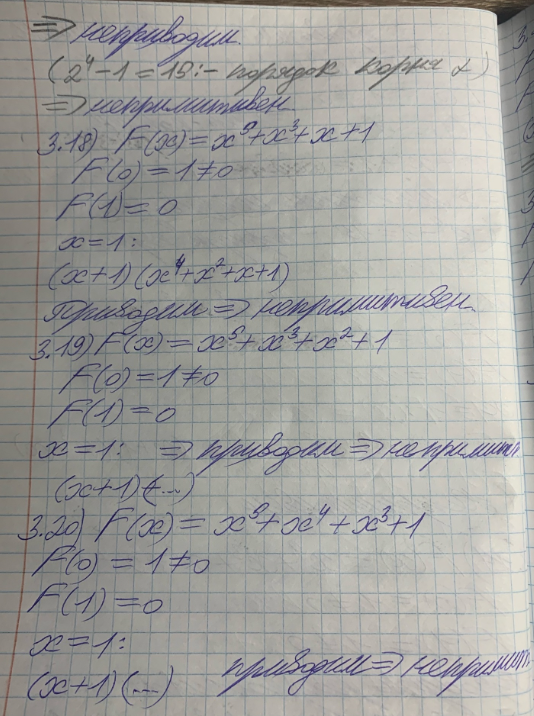 => неприводим.
(2⁴-1=15:- порядок корня α)
=> непримитивен
3.18) F(x)=x⁵+x³+x+1
F(0)=1≠0
F(1)=0
x=1:
(x+1)(x⁴+x²+x+1)
Приводим => непримитивен.
3.19) F(x)=x⁵+x³+x²+1
F(0)=1≠0
F(1)=0
x=1: => приводим => непримит
(x+1)(...)
3.20) F(x)=x⁵+x⁴+x³+1
F(0)=1≠0
F(1)=0
x=1:
(x+1)(...) приводим => непримит